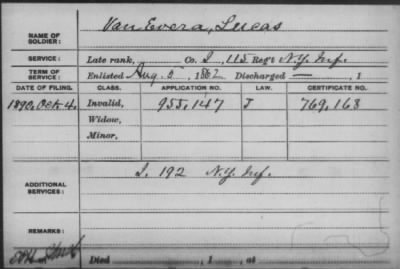 NAME OF SOLDIER: Van Evera, Lucas
SERVICE: Late rank, Co. I, 115 Reg't N.Y. Inf.
TERM OF SERVICE: Enlisted Aug. 5, 1862 Discharged —, 1
DATE OF FILING. CLASS. APPLICATION NO. LAW. CERTIFICATE NO.
1890, Oct 4. Invalid, 955,147 J 769,168
Widow,
Minor,
ADDITIONAL SERVICES: I. 192 N.Y. Inf.
REMARKS:
Died , 1 , at